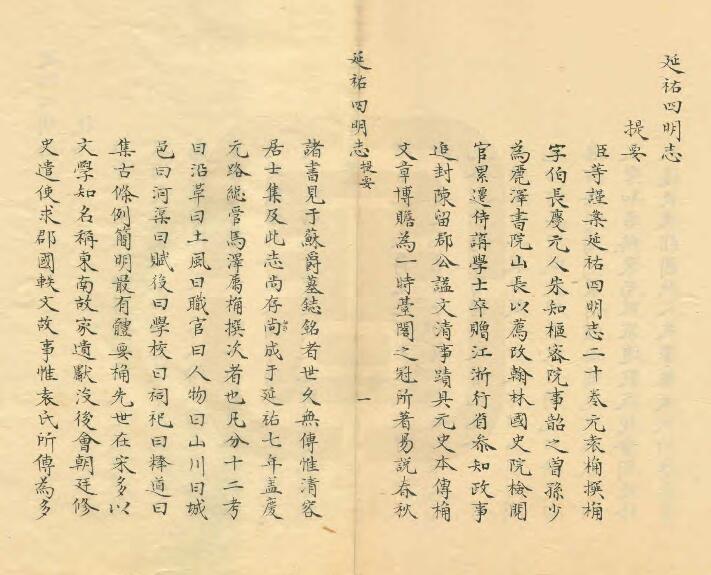 延祐四明志
提要
臣等謹案延祐四明志二十卷元袁桷撰桷
字伯長慶元人宋知樞密院事韶之曾孫少
為麗澤書院山長以薦改翰林國史院檢閱
官累遷侍講學士卒贈江浙行省參知政事
追封陳留郡公諡文清事蹟具元史本傳桷
文章博贍為一時臺閣之冠所著易說春秋
延祐四明志 提要 一
諸書見于蘇爵墓誌銘者世久無傳惟清容
居士集及此志尚存尚成于延祐七年葢慶
元路總管馬澤屬桷撰次者也凡分十二考
曰沿革曰土風曰職官曰人物曰山川曰城
邑曰河渠曰賦役曰學校曰祠祀曰釋道曰
集古條例簡明最有體要桷先世在宋多以
文學知名稱東南故家遺獻沒後會朝廷修
史遣使求郡國軼文故事惟袁氏所傳為多